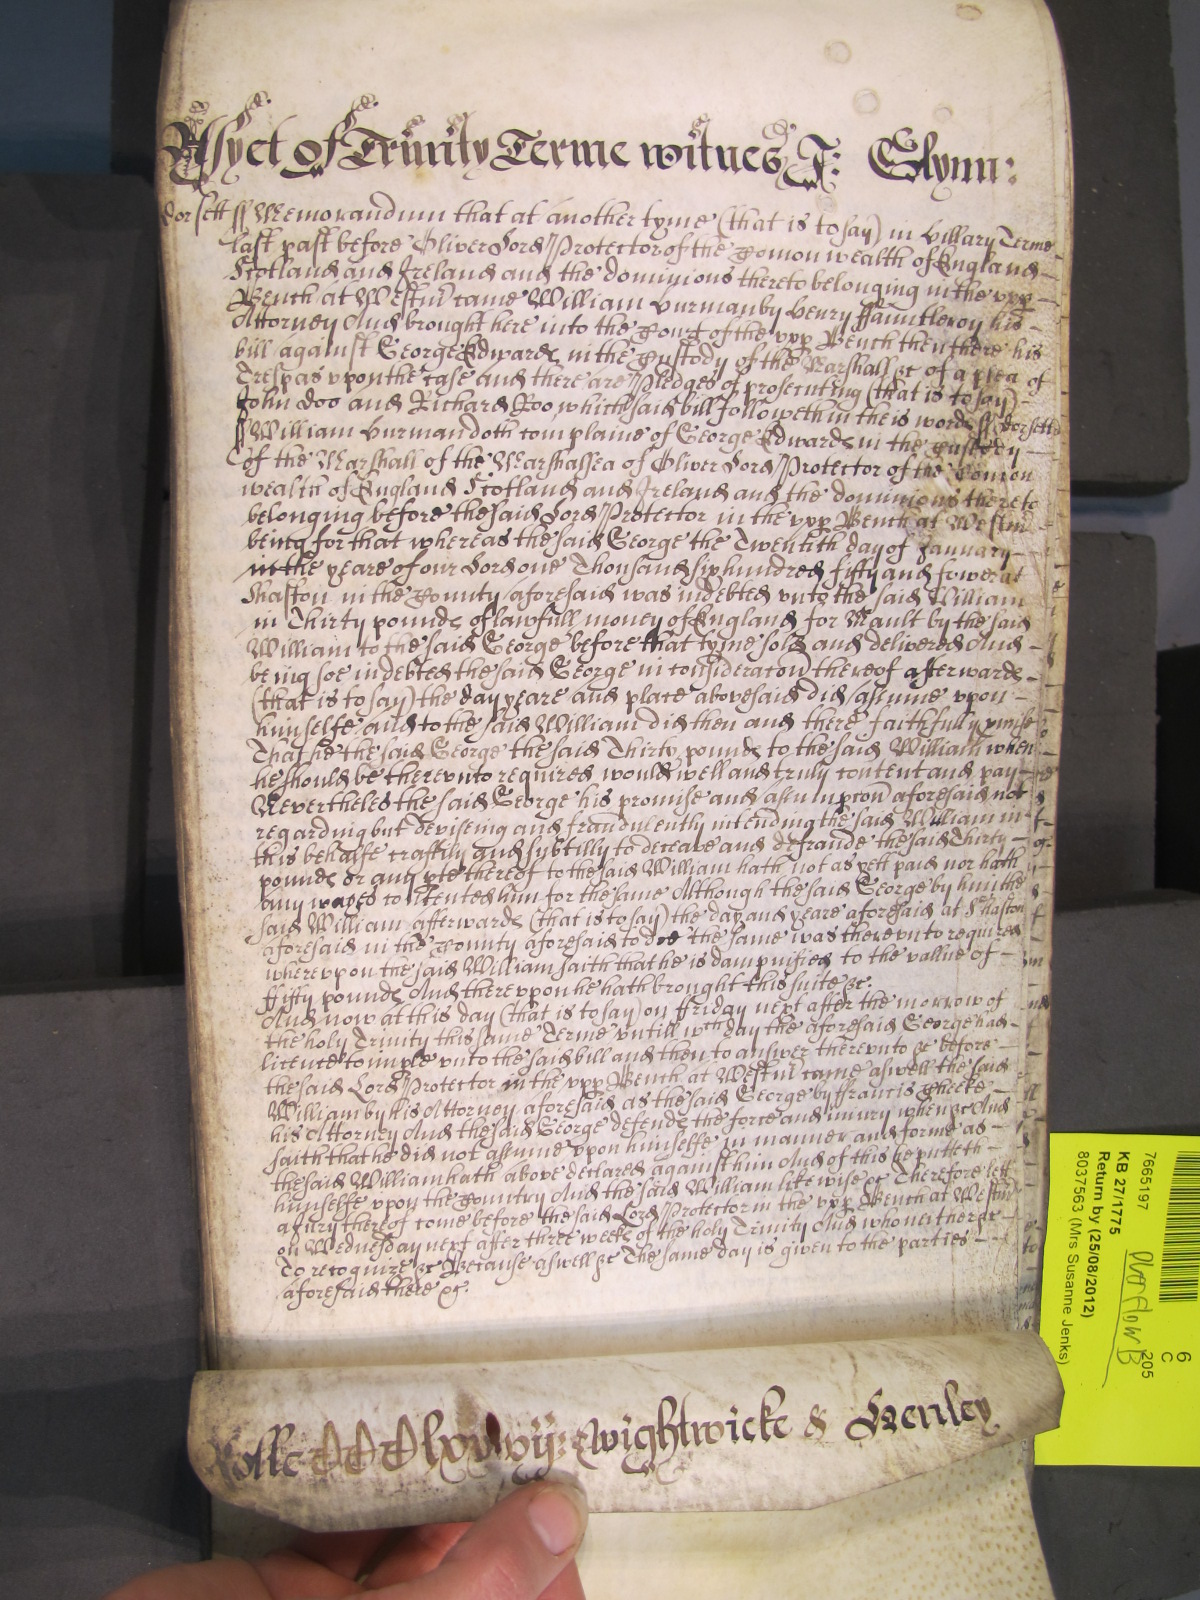 As yet of Trinity Terme witnes J: Glynn:
Dorsett ss Memorandum that at another tyme (that is to say) in hillary Terme
last past before Oliver Lord Protector of the Comon wealth of England
Scotland and Ireland and the dominions thereto belonging in the upp
Bench at Westm came William hurman by henry ffauntleroy his
Attorney And brought here into the Court of the upp Bench then there his
bill against George Edwards in the Custody of the Marshall &c of a plea of
Trespas upon the case and there are Pledges of prosecuting (that is to say)
John Doo and Richard Roo which said bill followeth in theis words ss Dorsett
ss William hurman doth complaine of George Edwards in the Custody
of the Marshall of the Marshalsea of Oliver Lord Protector of the Comon
wealth of England Scotland and Ireland and the dominions thereto
belonging before the said Lord Protector in the upp Bench at Westm
being for that whereas the said George the Twentith day of January
in the yeare of our Lord one Thousand six hundred fifty and fower at
Shaston in the County aforesaid was indebted unto the said William
in Thirty pounds of lawfull money of England for Mault by the said
William to the said George before that tyme sold and delivered And
being soe indebted the said George in consideracon thereof afterwards
(that is to say) the day yeare and place abovesaid did assume upon
himselfe and to the said William did then and there faithfully promise
That he the said George the said Thirty pounds to the said William when
he should be thereunto required would well and truly content and pay
Nevertheles the said George his promise and assumpcon aforesaid not
regarding but deviseing and fraudulently intending the said William in
this behalfe craftily and subtilly to deceave and defraude the said Thirty
pounds or any pte thereof to the said William hath not as yett paid nor hath
any wayes contented him for the same Although the said George by him the
said William afterwards (that is to say) the day and yeare aforesaid at Shaston
aforesaid in the County aforesaid to doe the same was thereunto required
whereupon the said William saith that he is dampnified to the vallue of
ffifty pounds And thereupon he hath brought this suite &c.
And now at this day (that is to say) on ffriday next after the morrow of
the holy Trinity this same Terme untill wch day the aforesaid George had
licence to imple unto the said bill and then to answer thereunto &c before
the said Lord Protector in the upp Bench at Westm came aswell the said
William by his Attorney aforesaid as the said George by ffrancis Cheeke
his Attorney And the said George defends the force and iniury when &c And
saith that he did not assume upon himselfe in manner and forme as
the said William hath above declared against him And of this he putteth
himselfe upon the Country And the said William likewise &c Therefore lett
a iury thereof come before the said Lord Protector in the upp Bench at Westm
on Wednesday next after three weeks of the holy Trinity And who neither &c
To recognize &c Because aswell &c The same day is given to the parties
aforesaid there &c.
Rolle Wightwicke & Henley
7665197
KB 27/1775
Return by (25/08/2012)
8037563 (Mrs Susanne Jenks)
overflow B
205
6
C